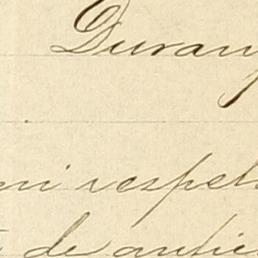 Duran
mi respet
de antic